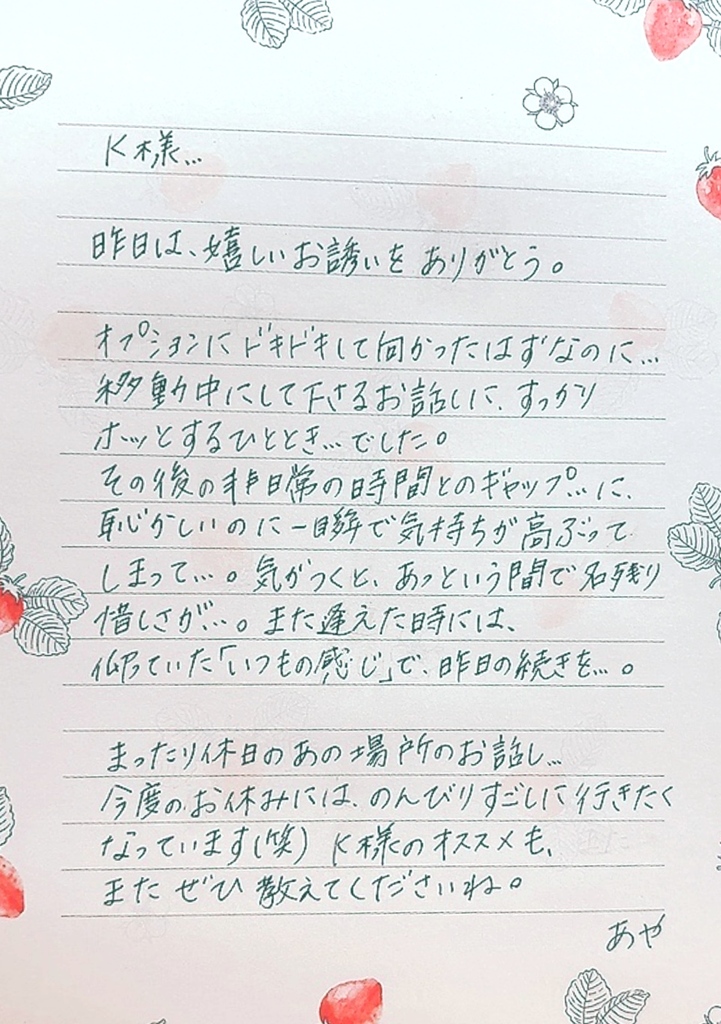 K様…
昨日は、嬉しいお誘いをありがとう。
オプションにドキドキして向かったはずなのに…
移動中にして下さるお話しに、すっかり
ホッとするひととき…でした。
その後の非日常の時間とのギャップ…に、
恥ずかしいのに一瞬で気持ちが高ぶって
しまって…。気がつくと、あっという間で名残り
惜しさが…。また逢えた時には、
仰っていた「いつもの感じ」で、昨日の続きを…。
まったり休日のあの場所のお話し…
今度のお休みには、のんびりすごしに行きたく
なっています(笑) K様のオススメも、
またぜひ教えてくださいね。
あや